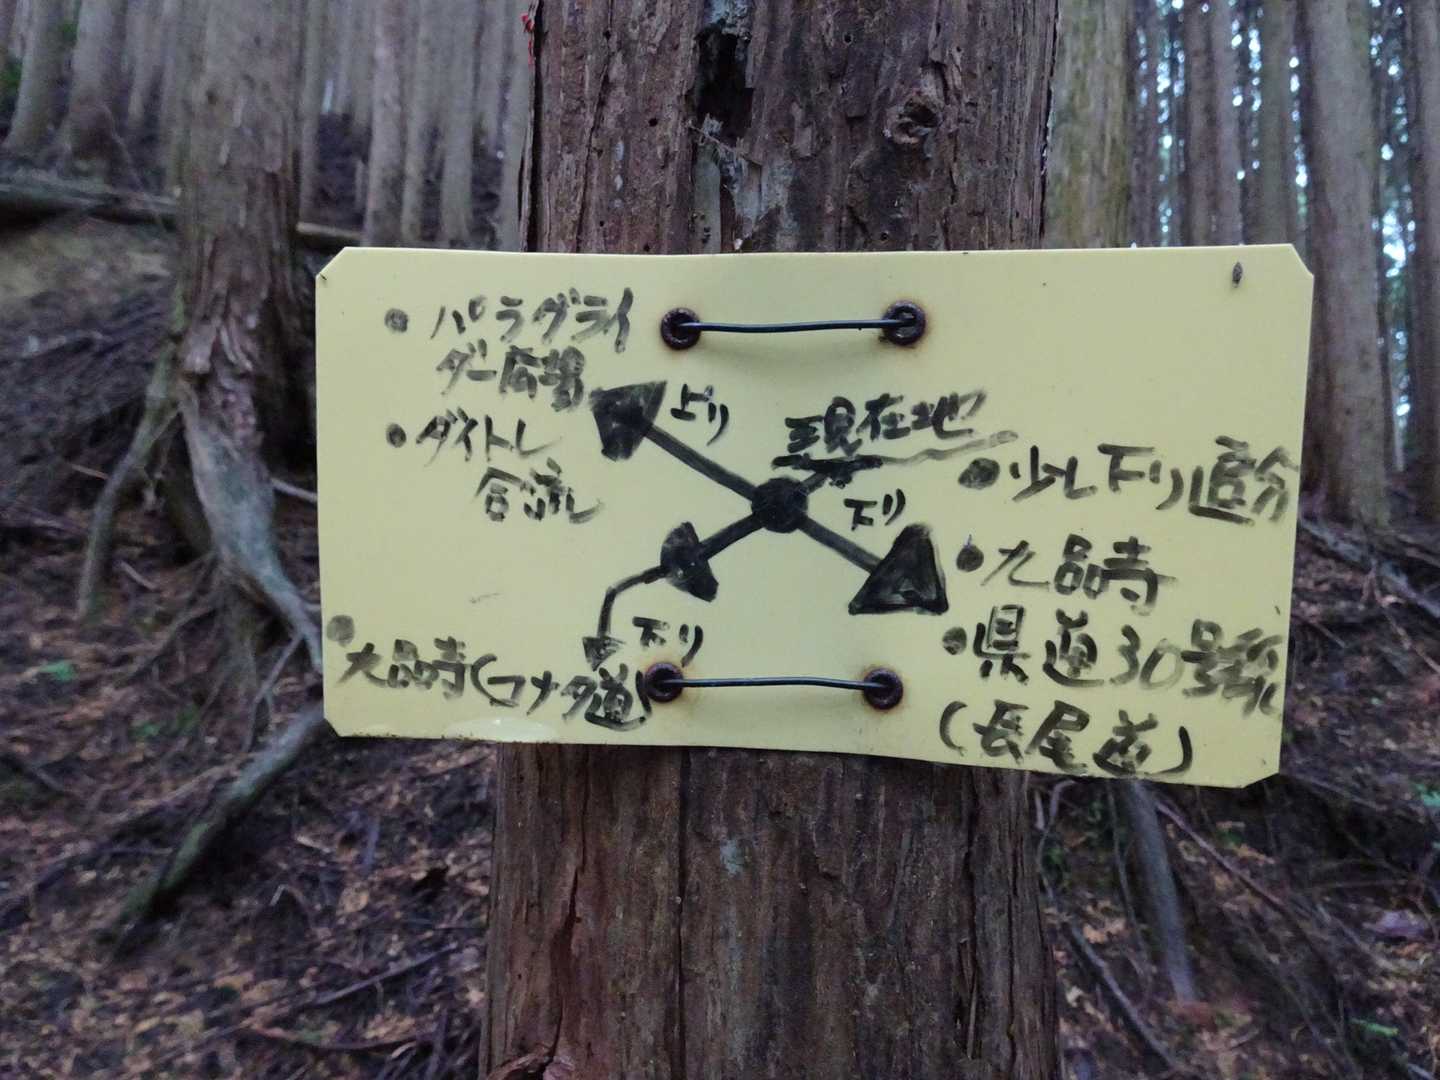 ● パラグライ
ダー広場
● ダイトレ
合流
上り
現在地
下り
● 少し下り直分
● 九品寺
● 県道30号線
(長尾道)
下り
● 九品寺(コナタ道)